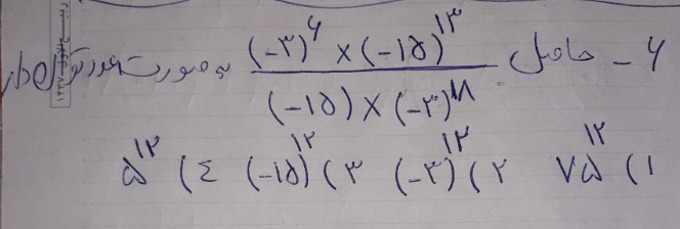 ۶ - حاصل (-۳)^۶ × (-۱۵)^۱۳ / (-۱۵) × (-۳)^۱۸ به صورت عدد توان دار
۱) ۷۵^۱۲ ۲) (-۳)^۱۲ ۳) (-۱۵)^۱۲ ۴) ۵^۱۲